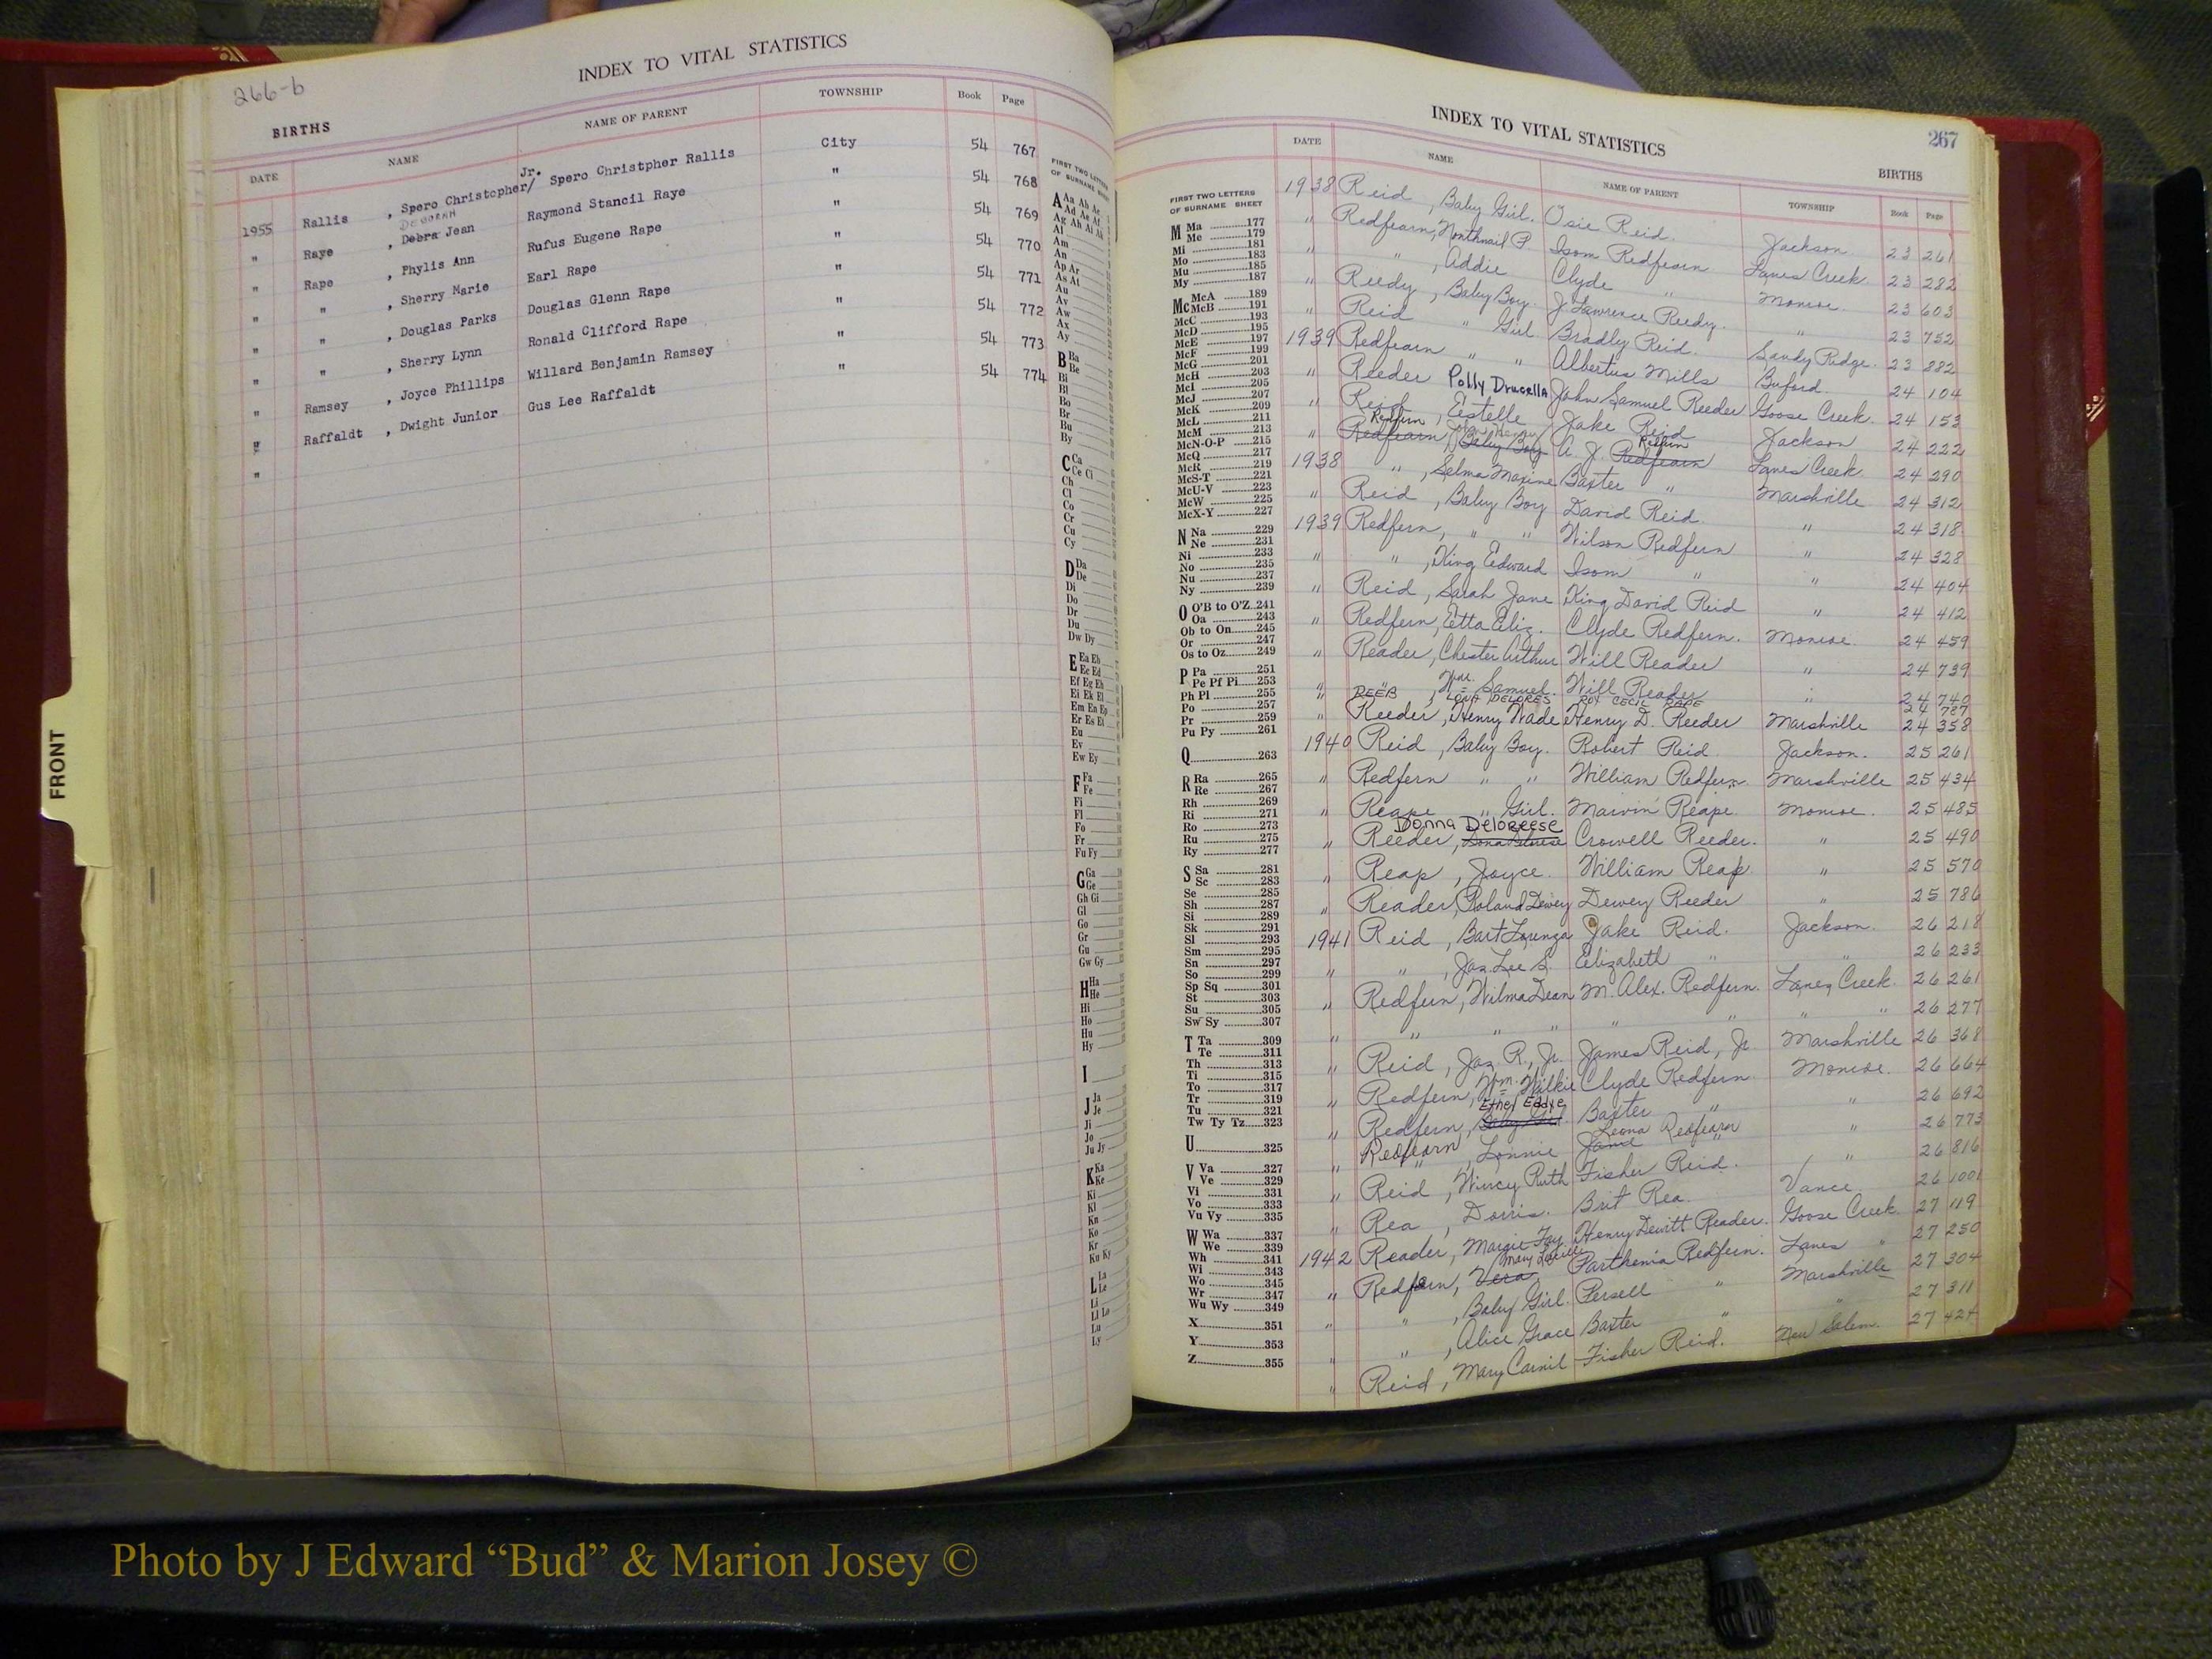 266-b
INDEX TO VITAL STATISTICS
BIRTHS
DATE NAME NAME OF PARENT TOWNSHIP Book Page
1955 Rallis , Spero Christopher/ Jr. Spero Christpher Rallis City 54 767
" Raye , Debra Jean Raymond Stancil Raye " 54 768
DEBORAH
" Rape , Phylis Ann Rufus Eugene Rape " 54 769
" " , Sherry Marie Earl Rape " 54 770
" " , Douglas Parks Douglas Glenn Rape " 54 771
" " , Sherry Lynn Ronald Clifford Rape " 54 772
" Ramsey , Joyce Phillips Willard Benjamin Ramsey " 54 773
" Raffaldt , Dwight Junior Gus Lee Raffaldt " 54 774
"
FRONT
267
INDEX TO VITAL STATISTICS
BIRTHS
DATE NAME NAME OF PARENT TOWNSHIP Book Page
1938 Reid , Baby Girl. Osie Reid. Jackson 23 261
" Redfearn, P. Isom Redfearn Lanes Creek 23 282
" " , Addie Clyde " Monroe 23 603
" Reedy , Baby Boy. J. Lawrence Reedy. " 23 752
" Reid " Girl. Bradly Reid. Sandy Ridge. 23 882
1939 Redfearn " " Albertus Mills Buford. 24 104
" Reeder Polly Drucella John Samuel Reeder Goose Creek. 24 153
" Reid , Estelle Jake Reid Jackson 24 222
Redfern Redfern
" Redfearn, Baby Boy A. J. Redfearn Lanes Creek. 24 290
1938 " , Selma Maxine Baxter " Marshville 24 312
" Reid , Baby Boy David Reid. " 24 318
1939 Redfern, " " Wilson Redfern " 24 328
" " , King Edward Isom " " 24 404
" Reid , Sarah Jane King David Reid " 24 412
" Redfern, Etta Eliz. Clyde Redfern. Monroe 24 459
" Reader, Chester Arthur Will Reader " 24 739
" " , Wm. Samuel. Will Reader " 24 740
" REEB , LOUA DELORES ROY CECIL RAPE 24 787
" Reeder, Henry Wade Henry D. Reeder Marshville 24 358
1940 Reid , Baby Boy. Robert Reid Jackson. 25 261
" Redfern " " William Redfern. Marshville 25 434
" Reape " Girl. Marvin Reape Monroe. 25 485
Donna Deloreese
" Reeder, Crowell Reeder. " 25 490
" Reap , Joyce. William Reap. " 25 570
" Reader, Roland Dewey Dewey Reeder " 25 786
1941 Reid , Bart Lorenza Jake Reid. Jackson. 26 218
" " , Jas. Lee S. Elizabeth " " 26 233
" Redfern, Wilma Dean M. Alex. Redfern. Lanes Creek. 26 261
" " " " " " " " 26 277
" Reid , Jas. R., Jr. James Reid, Jr Marshville 26 368
" Redfern, Wm. Wilkie Clyde Redfern Monroe. 26 664
Ethel Eddye
" Redfern, Baby Girl. Baxter " " 26 692
Leona Redfearn
" Redfearn , Lonnie Jane " " 26 773
" Reid , Wincy Ruth Fisher Reid. " 26 816
" Rea , Dorris. Brit Rea. Vance 26 1001
1942 Reader, Margie Fay. Henry Dewitt Reader. Goose Creek 27 119
Mary Lucille
" Redfern, Vera Parthenia Redfern. Lanes " 27 250
" " , Baby Girl. Persell " Marshville 27 304
" " , Alice Grace Baxter " " 27 311
" Reid , Mary Carnil Fisher Reid. New Salem. 27 424
FIRST TWO LETTERS
OF SURNAME SHEET
M Ma 177
Me 179
Mi 181
Mo 183
Mu 185
My 187
Mc McA 189
McB 191
McC 193
McD 195
McE 197
McF 199
McG 201
McH 203
McI 205
McJ 207
McK 209
McL 211
McM 213
McN-O-P 215
McQ 217
McR 219
McS-T 221
McU-V 223
McW 225
McX-Y 227
N Na 229
Ne 231
Ni 233
No 235
Nu 237
Ny 239
O O'B to O'Z 241
Oa 243
Ob to On 245
Or 247
Os to Oz 249
P Pa 251
Pe Pf Pi 253
Ph Pl 255
Po 257
Pr 259
Pu Py 261
Q 263
R Ra 265
Re 267
Rh 269
Ri 271
Ro 273
Ru 275
Ry 277
S Sa 281
Sc 283
Se 285
Sh 287
Si 289
Sk 291
Sl 293
Sm 295
Sn 297
So 299
Sp Sq 301
St 303
Su 305
Sw Sy 307
T Ta 309
Te 311
Th 313
Ti 315
To 317
Tr 319
Tu 321
Tw Ty Tz 323
U 325
V Va 327
Ve 329
Vi 331
Vo 333
Vu Vy 335
W Wa 337
We 339
Wh 341
Wi 343
Wo 345
Wr 347
Wu Wy 349
X 351
Y 353
Z 355
Photo by J Edward “Bud” & Marion Josey ©